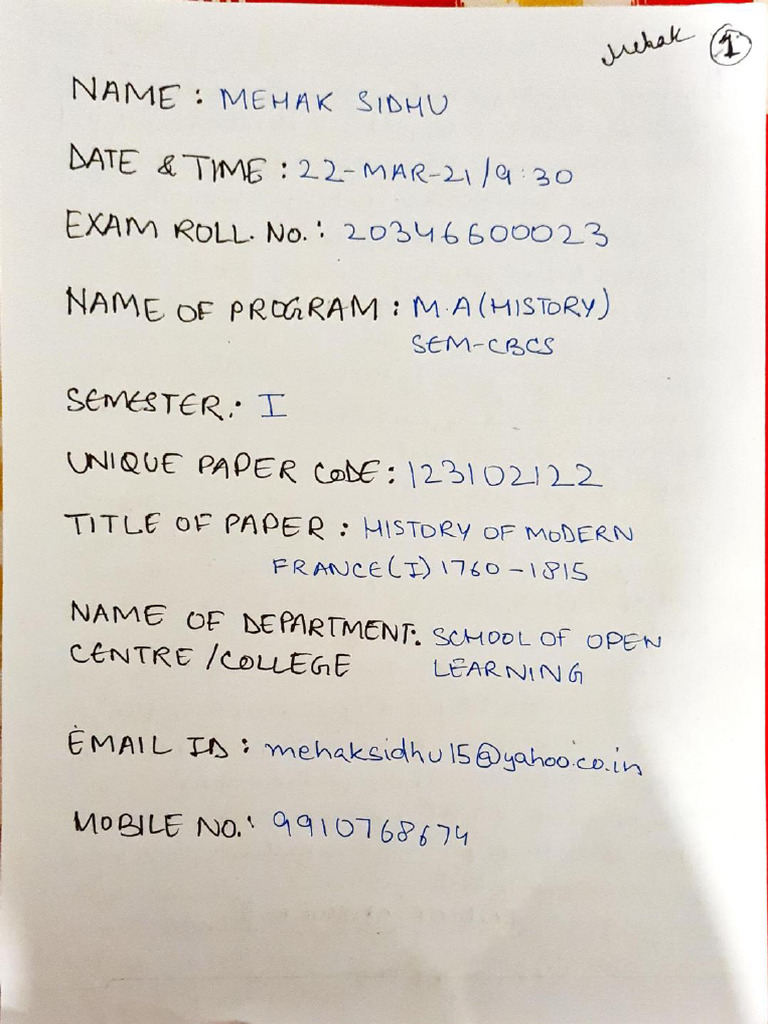 Mehak 1
NAME : MEHAK SIDHU
DATE & TIME : 22-MAR-21/9:30
EXAM ROLL. No. : 20346600023
NAME OF PROGRAM : M.A (HISTORY)
SEM-CBCS
SEMESTER : I
UNIQUE PAPER CODE : 123102122
TITLE OF PAPER : HISTORY OF MODERN
FRANCE (I) 1760-1815
NAME OF DEPARTMENT : SCHOOL OF OPEN
CENTRE /COLLEGE LEARNING
EMAIL ID : mehaksidhu15@yahoo.co.in
MOBILE NO. : 9910768674